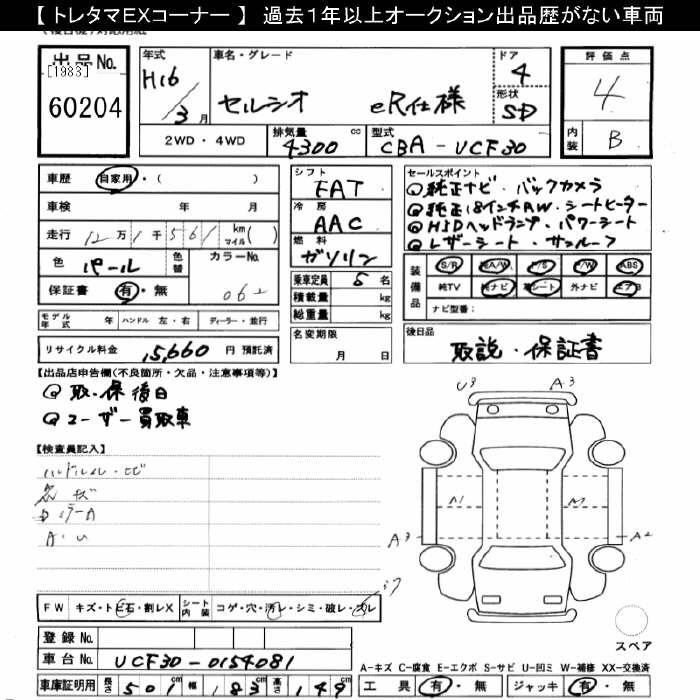 【トレタマEXコーナー】 過去1年以上オークション出品歴がない車両
出品No.
[1983]
60204
年式
H16
3 月
車名・グレード
セルシオ eR仕様
ドア
4
形状
SD
評価点
4
内装
B
2WD・4WD
排気量 cc
4300
型式
CBA-UCF30
車歴 自家用・( )
車検 年 月
走行 12万1千561 km マイル( )
色 パール 色替 カラーNo. 062
保証書 有・無
モデル年式 年 ハンドル 左・右 ディーラー・並行
リサイクル料金 15,660 円 預託済
シフト
FAT
冷房
AAC
燃料
ガソリン
乗車定員 5 名
積載量 kg
総重量 kg
名変期限
月 日
セールスポイント
純正ナビ・バックカメラ
純正18インチAW・シートヒーター
HIDヘッドランプ・パワーシート
レザーシート・サンルーフ
装備品
S/R 純A/W P/S P/W ABS
純TV 純ナビ 革シート 外ナビ エアB
ナビ型番:
後日品
取説・保証書
【出品店申告欄(不良箇所・欠品・注意事項等)】
取・保後日
ユーザー買取車
【検査員記入】
A・U
U3
A3
A1
A3
A2
FW キズ・トビ石・割レX
シート内装 コゲ・穴・汚レ・シミ・破レ・スレ
登録No.
車台No. UCF30-0154081
車庫証明用 長さ 501 cm 幅 183 cm 高さ 149 cm
スペア
A-キズ C-腐食 E-エクボ S-サビ U-凹ミ W-補修 XX-交換済
工具 有・無 ジャッキ 有・無